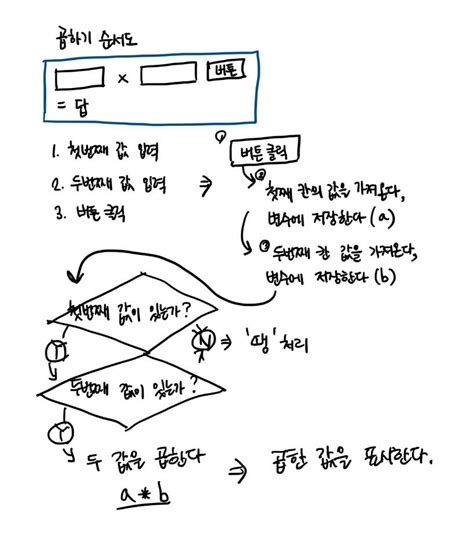 곱하기 순서도
× 버튼
= 답
1. 첫번째 값 입력
2. 두번째 값 입력 ⇒
3. 버튼 클릭
① 버튼 클릭
② 첫째 칸의 값을 가져온다,
변수에 저장한다 (a)
③ 두번째 칸 값을 가져온다,
변수에 저장한다 (b)
첫번째 값이 있는가?
Y
N ⇒ '땡' 처리
두번째 값이 있는가?
Y
두 값을 곱한다 ⇒ 곱한 값을 표시한다.
a * b